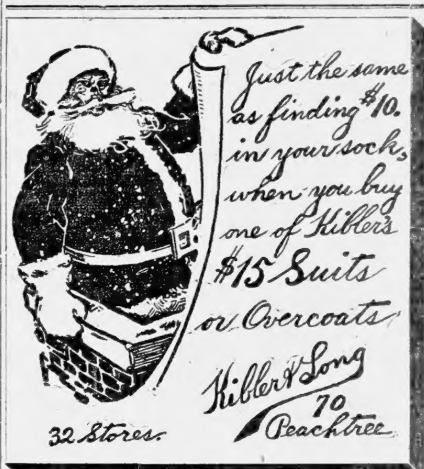 Just the same
as finding $10.
in your sock,
when you buy
one of Kibler's
$15 Suits
or Overcoats
Kibler & Long
70
Peachtree
32 Stores.